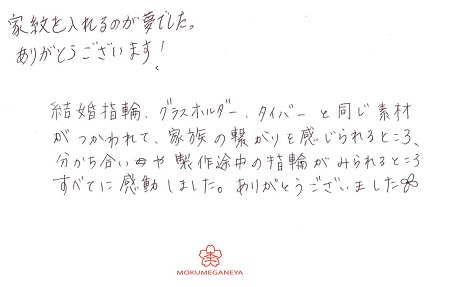 家紋を入れるのが夢でした。
ありがとうございます!
結婚指輪、グラスホルダー、タイバーと同じ素材
がつかわれて、家族の繋がりを感じられるところ、
分かち合いや製作途中の指輪がみられるところ
すべてに感動しました。ありがとうございました
MOKUMEGANEYA